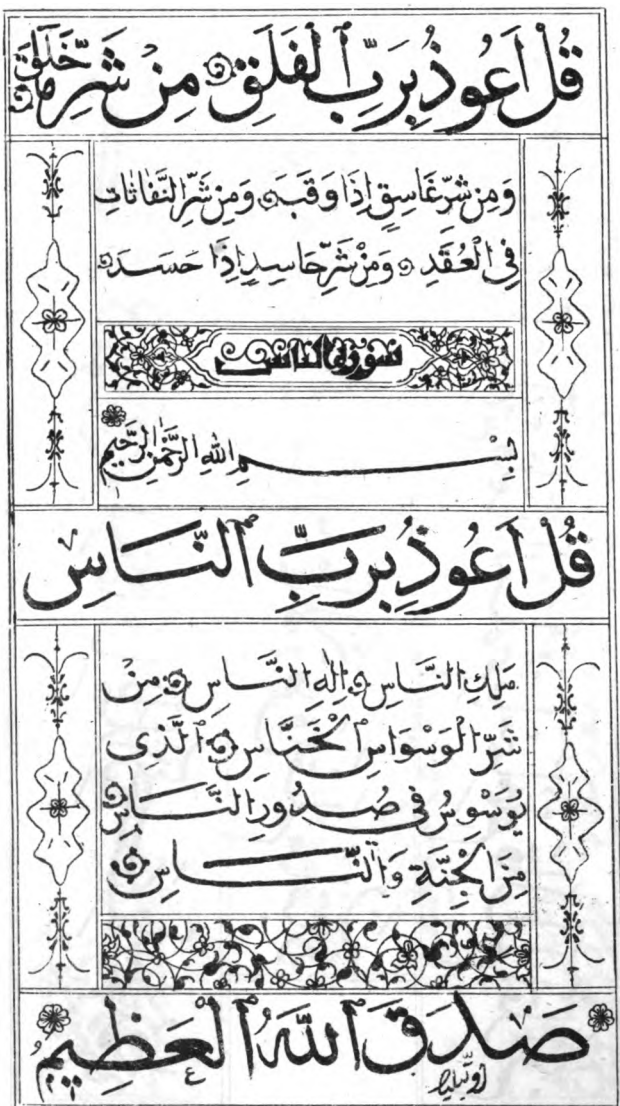 قُلْ اَعُوذُ بِرَبِّ ٱلْفَلَقِ مِنْ شَرِّ مَا خَلَقَ
وَمِنْ شَرِّ غَاسِقٍ اِذَا وَقَبَ وَمِنْ شَرِّ النَّفَّاثَاتِ
فِي الْعُقَدِ وَمِنْ شَرِّ حَاسِدٍ اِذَا حَسَدَ
سورة الناس
بِسْمِ اللهِ الرَّحْمٰنِ الرَّحِيمِ
قُلْ اَعُوذُ بِرَبِّ ٱلنَّاسِ
مَلِكِ النَّاسِ اِلٰهِ النَّاسِ مِنْ
شَرِّ الْوَسْوَاسِ ٱلْخَنَّاسِ ٱلَّذِى
يُوَسْوِسُ فِى صُدُورِ النَّاسِ
مِنَ الْجِنَّةِ وَالنَّاسِ
صَدَقَ ٱللهُ ٱلْعَظِيمُ